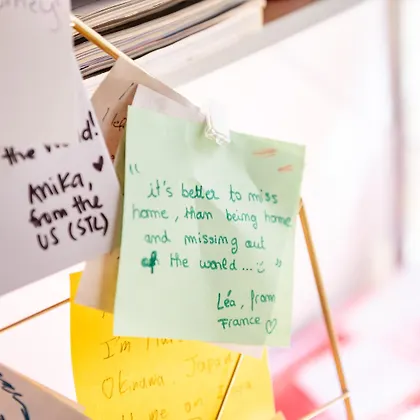 the
Anika,
from the
US (STL)
"it's better to miss
home, than being home
and missing out
of the world... "
Léa, from
France
I'm
Okinawa, Japan
me on